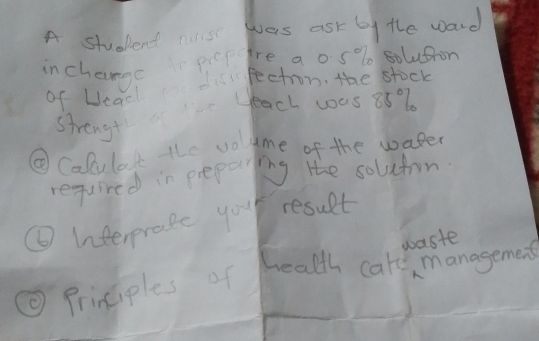 A student nurse was ask by the ward
incharge to prepare a 0.5% solution
of bleach for disinfection. the stock
strength of the bleach was 85%
(a) Calculate the volume of the water
required in preparing the solution.
(b) Interprate your result
(c) Principles of health care waste management